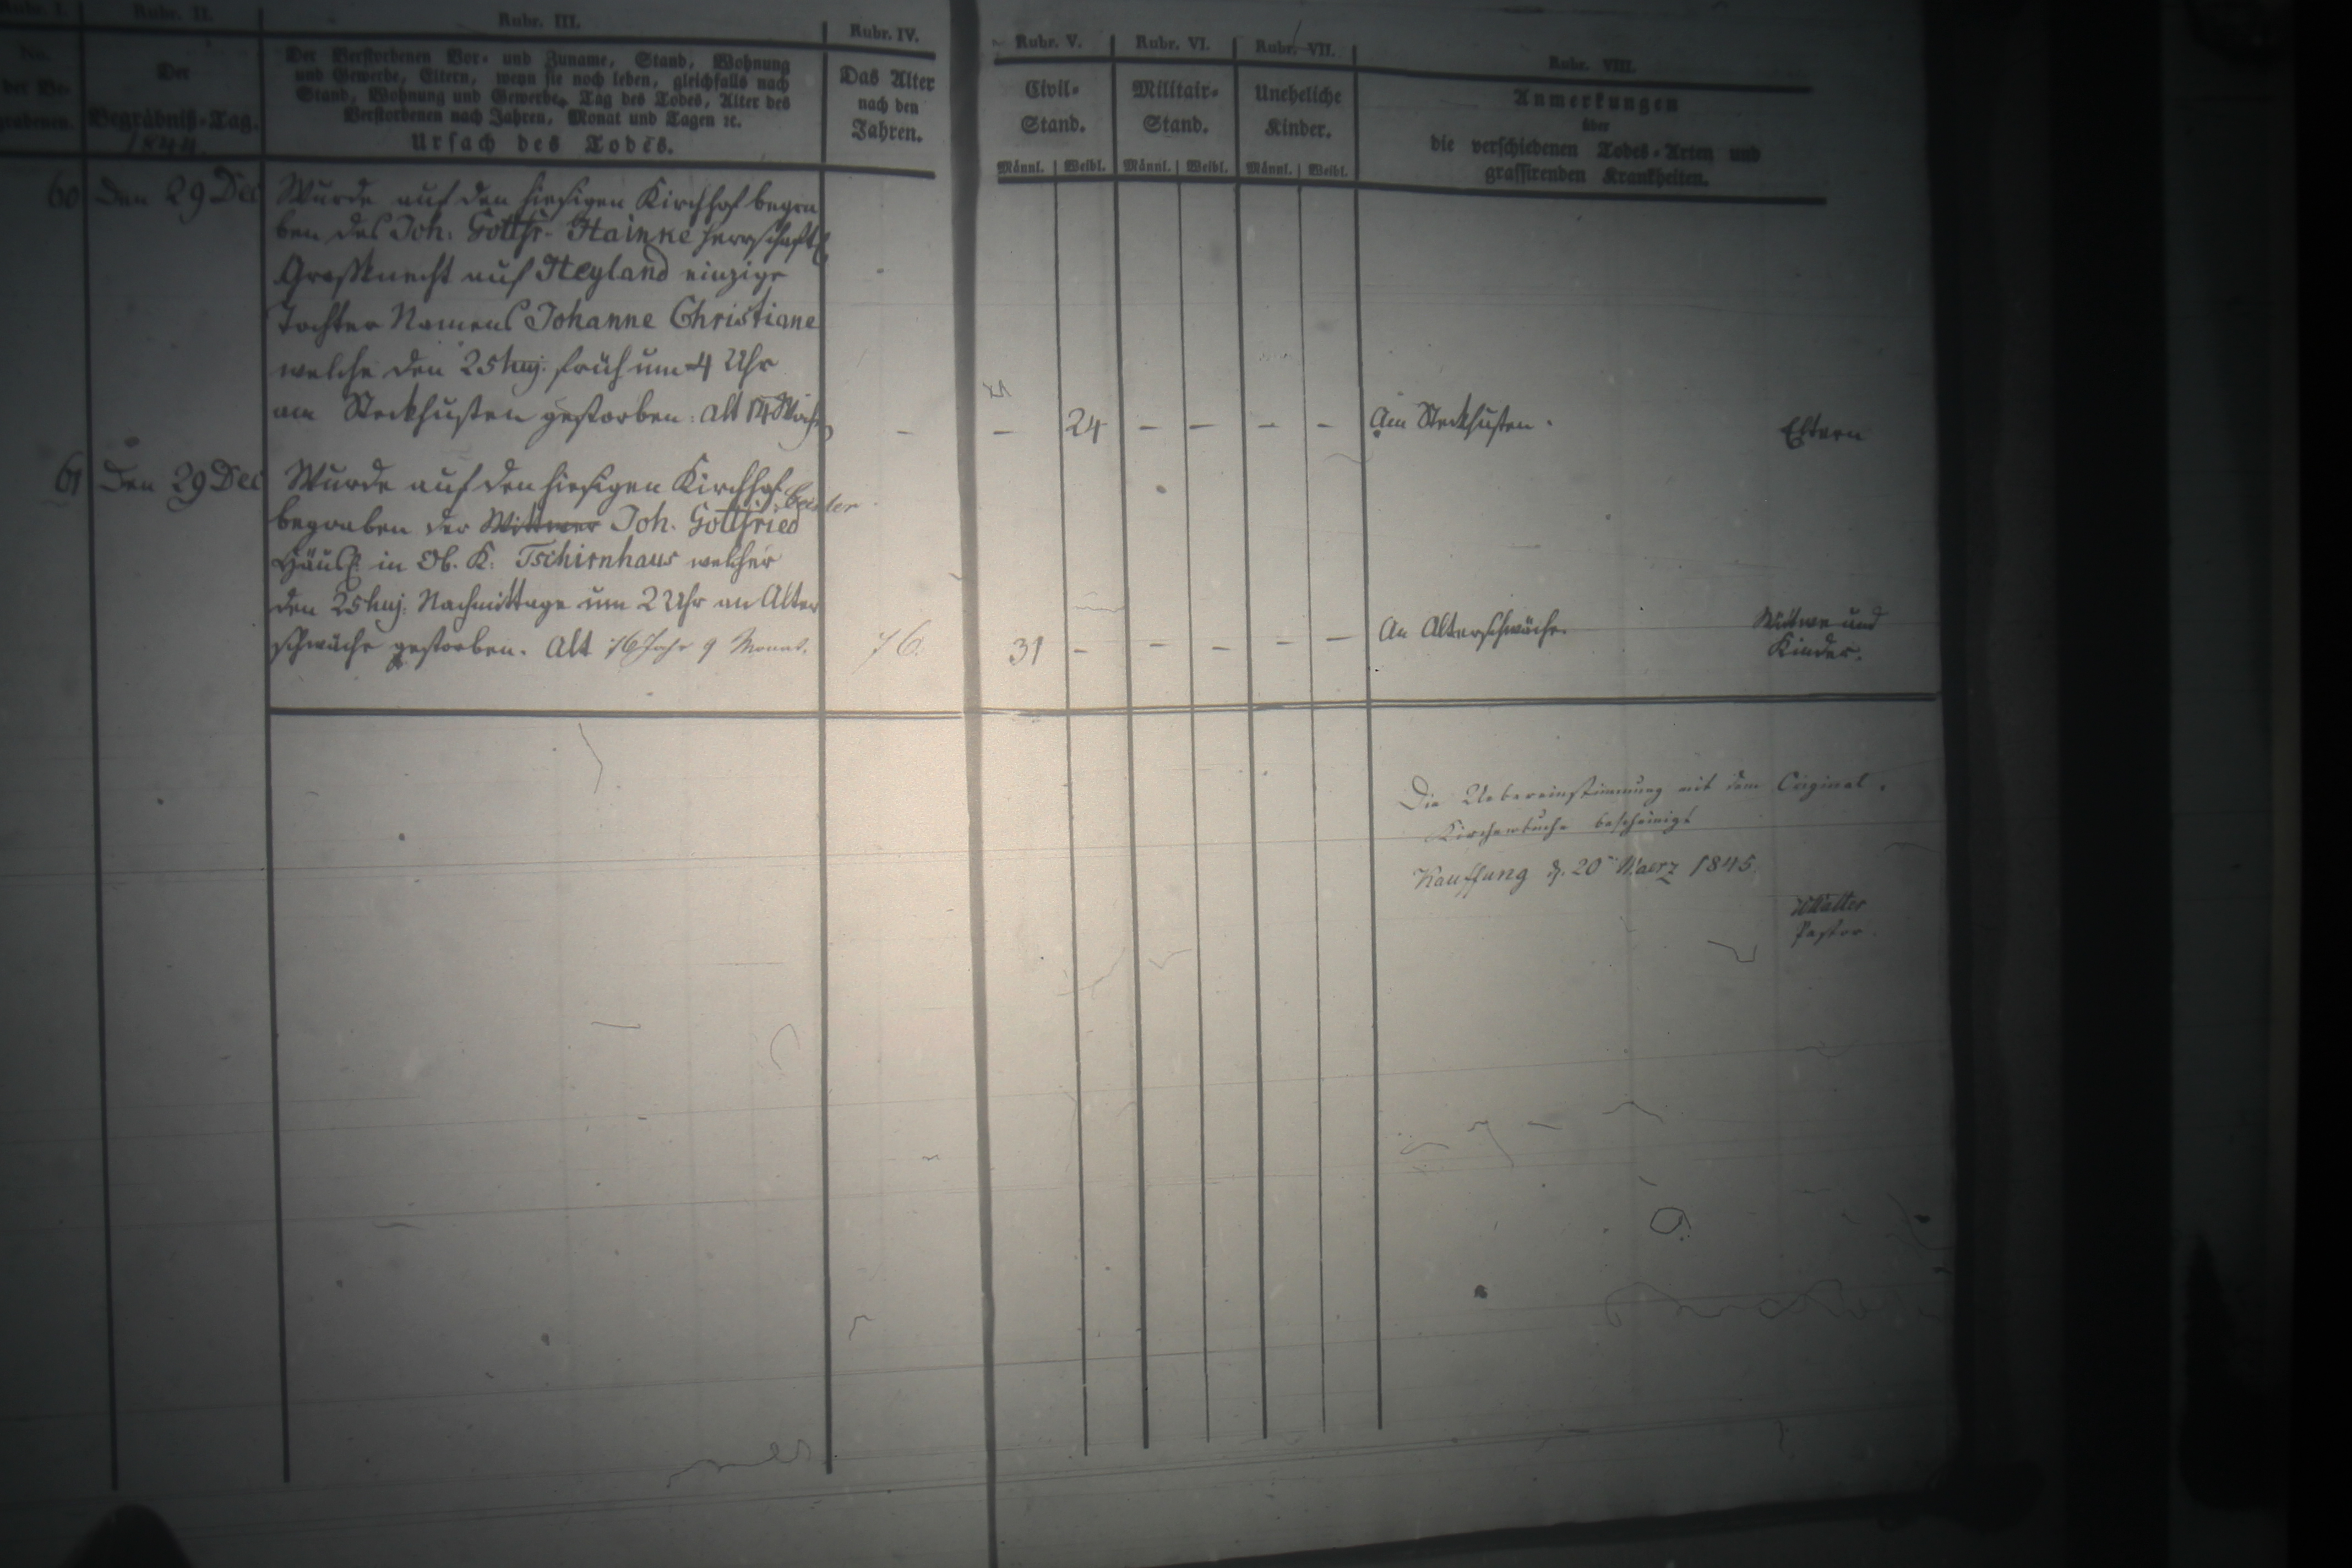 Rubr. I.
No.
der Be-
grabenen.
Rubr. II.
Der
Begräbniß-Tag.
1844.
Rubr. III.
Der Verstorbenen Vor- und Zuname, Stand, Wohnung
und Gewerbe, Eltern, wenn sie noch leben, gleichfalls nach
Stand, Wohnung und Gewerbe, Tag des Todes, Alter des
Verstorbenen nach Jahren, Monat und Tagen ꝛc.
Ursach des Todes.
Rubr. IV.
Das Alter
nach den
Jahren.
Rubr. V.
Civil-
Stand.
Männl. Weibl.
Rubr. VI.
Militair-
Stand.
Männl. Weibl.
Rubr. VII.
Uneheliche
Kinder.
Männl. Weibl.
Rubr. VIII.
Anmerkungen
über
die verschiedenen Todes-Arten und
grassirenden Krankheiten.
60 Den 29 Dec
Wurde auf den hiesigen Kirchhof begra
ben des Joh: Gottfr. Hainke herrschaftl
Großknecht auf Heyland einzige
Tochter Namens Johanne Christiane
welche den 25 huj: früh um 4 Uhr
am Steckhusten gestorben: Alt 14 Woch
– – 24 – – – – Am Steckhusten. Eltern
61 Den 29 Dec
Wurde auf den hiesigen Kirchhof
begraben der Wittwer Joh. Gottfried
Häusl: in Ob. K: Tschirnhaus welcher
den 25 huj: Nachmittage um 2 Uhr an Alter
schwäche gestorben. Alt 76 Jahr 9 Monat.
76. 31 – – – – – An Alterschwäche. Wittwe und
Kinder.
Die Uebereinstimmung mit dem Original-
Kirchenbuche bescheinigt
Kauffung d. 20 Maerz 1845.
Walter
Pastor.